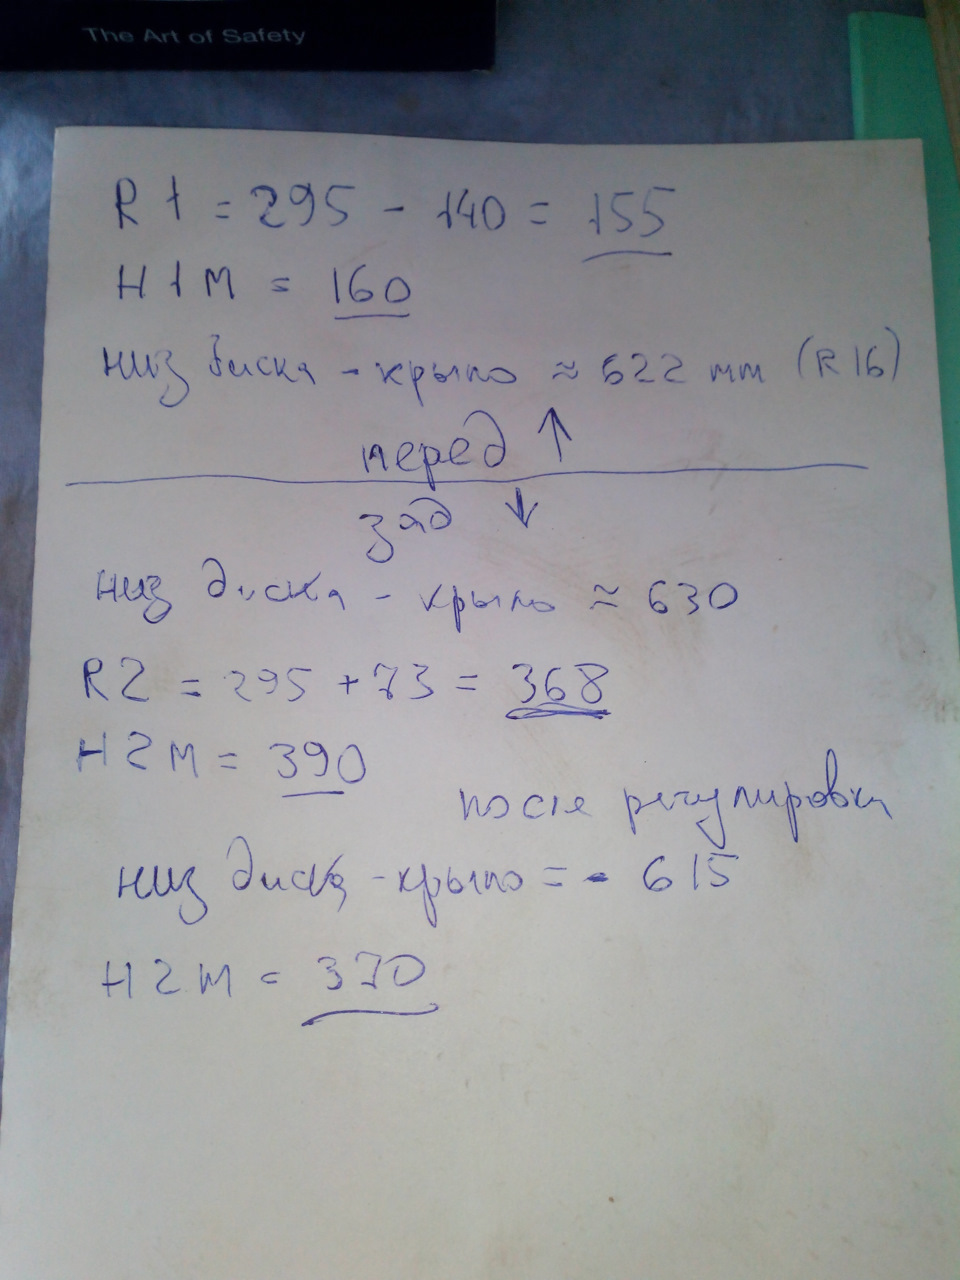 The Art of Safety
R1 = 295 - 140 = 155
H1M = 160
низ диска - крыло ≈ 622 mm (R16)
перед ↑
зад ↓
низ диска - крыло ≈ 630
R2 = 295 + 73 = 368
H2M = 390
после регулировки
низ диска - крыло = - 615
H2M = 370